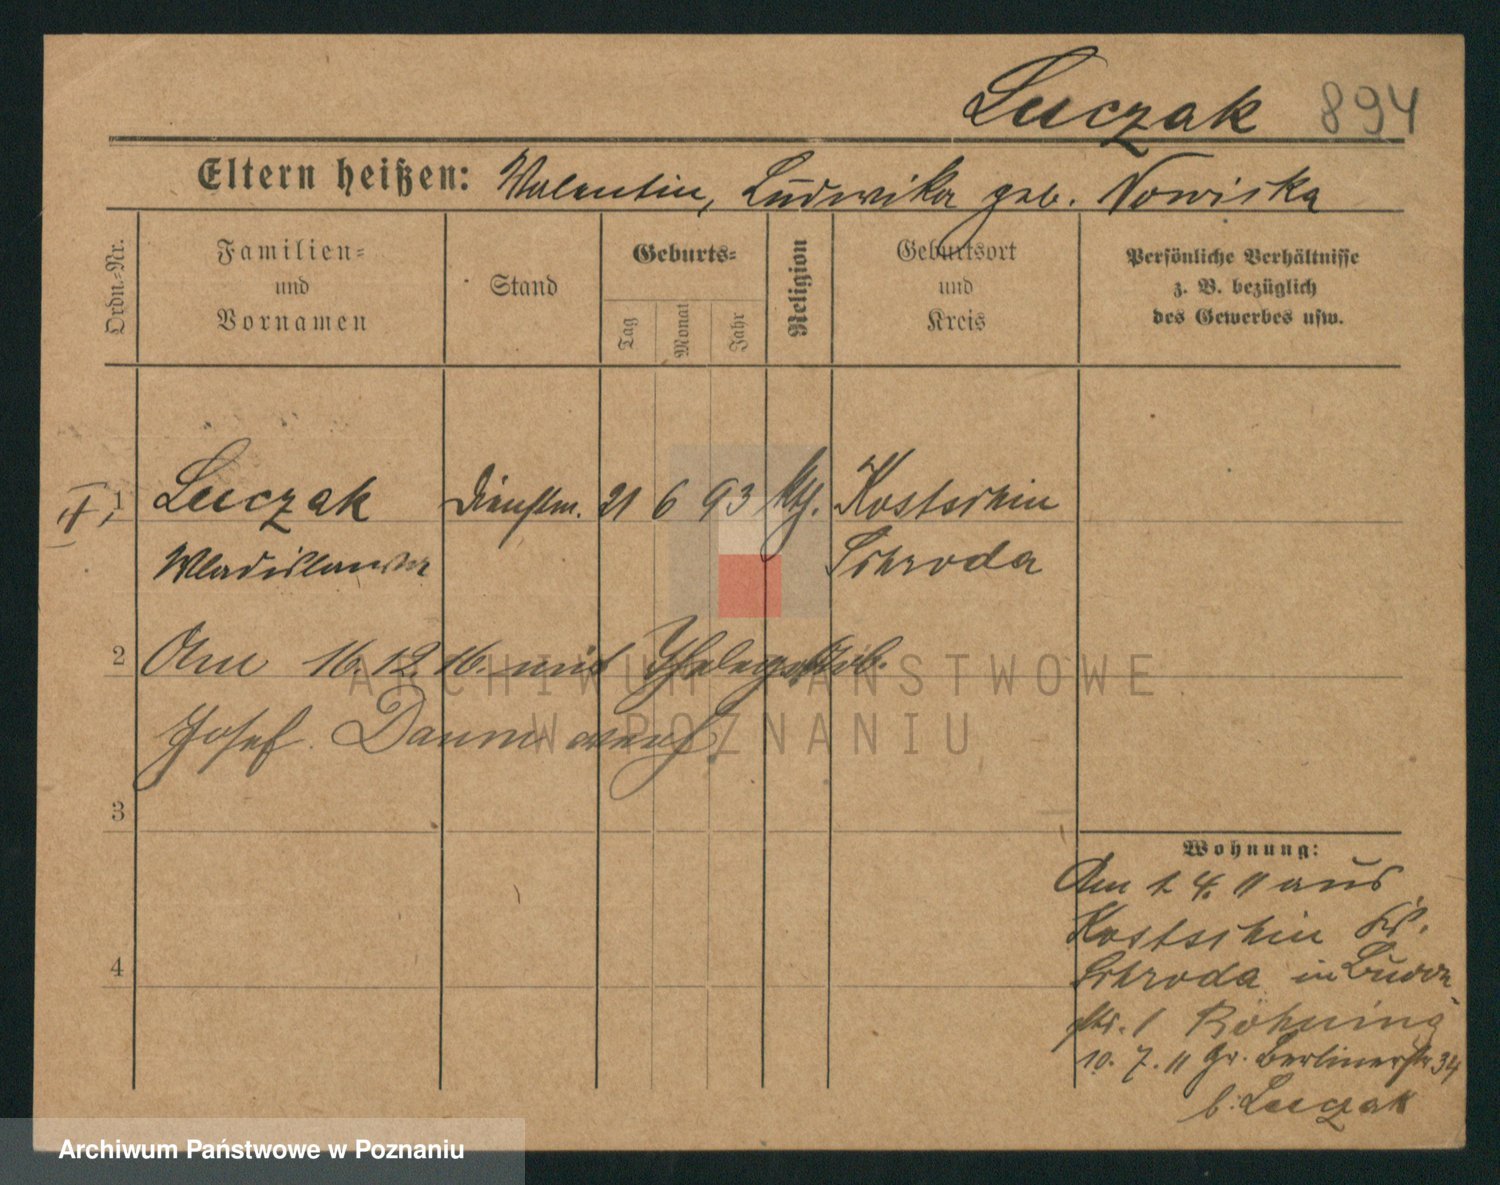 Luczak 894
Eltern heißen: Valentin, Ludwika geb. Nowiska
Ordn.-Nr.
Familien- und Vornamen
Stand
Geburts-
Tag
Monat
Jahr
Religion
Geburtsort und Kreis
Persönliche Verhältnisse z. B. bezüglich des Gewerbes usw.
1 Luczak Dienstm. 21 6 93 kth. Kostschin
Wladislawa Schroda
2 Am 16.12.16. mit
Josef
3
4
Wohnung:
Am 1. 4. 11 aus
Kostschin Kr.
Schroda in
str. 1 Röhming
10. 7. 11 Gr. Berlinerstr 34
b. Luczak
ARCHIWUM PAŃSTWOWE
W POZNANIU
Archiwum Państwowe w Poznaniu